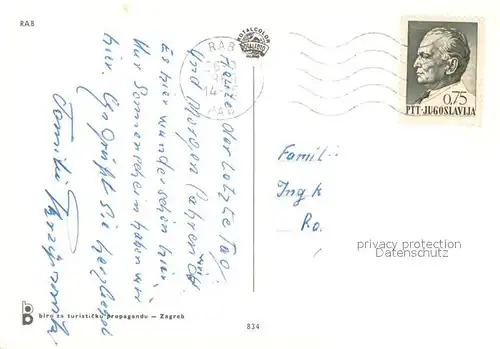 RAB
ROYALCOLOR
RAB
14
RAB
0.75
PTT-JUGOSLAVIJA
Heute der letzte Tag,
und Morgen fahren wir
Es hier wunderschön hier.
Nur Sonnenschein haben wir
hier. Es grüßt Sie herzlichst
Familie
Famili
Ing k
Ro.
privacy protection
Datenschutz
biro za turističku propagandu — Zagreb
834